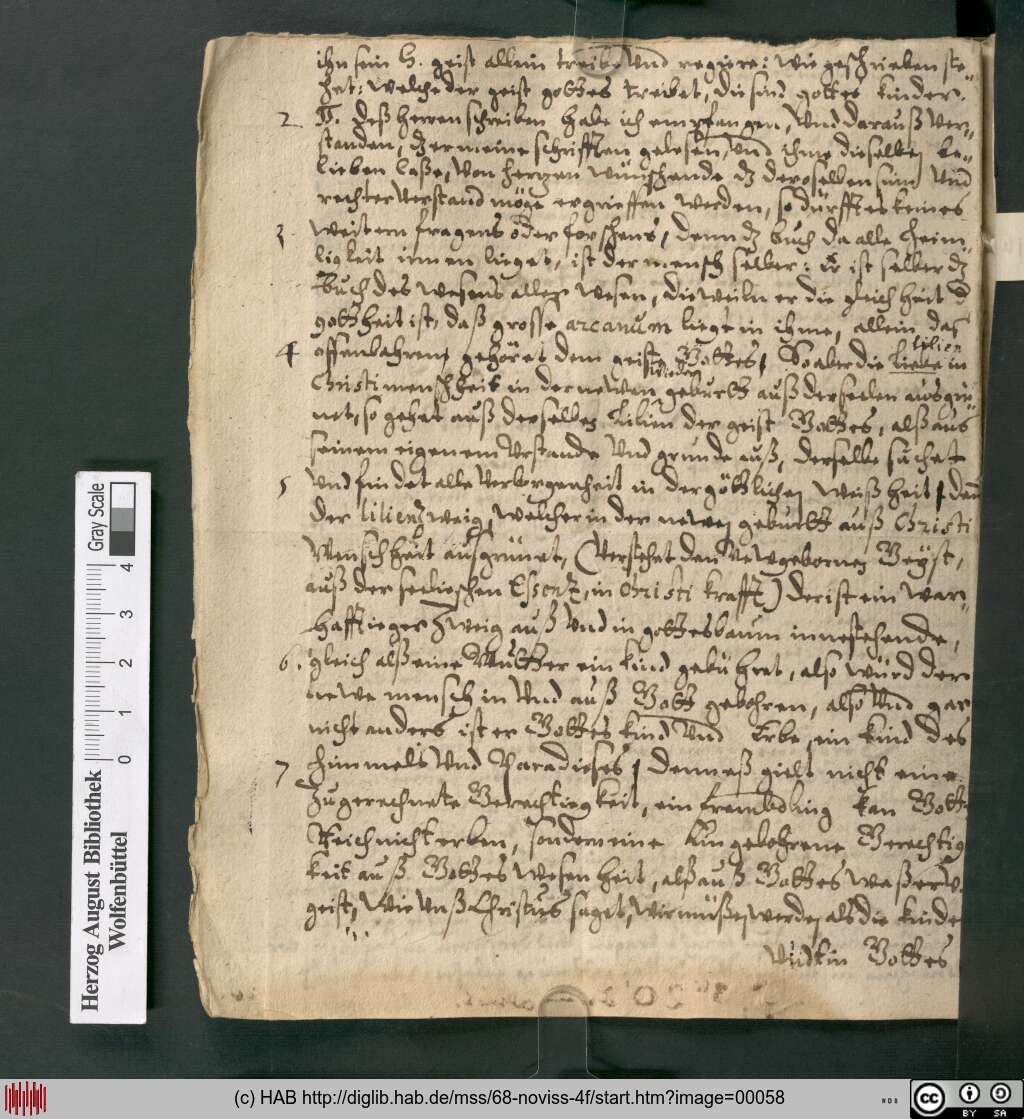 ihn sein H. geist allein treibe Und regiere: wie geschrieben ste=
het: welche der geist gottes treibet, die sind gottes kinder.
2 Deß Herren schreiben habe ich empfangen, Und darauß Ver=
standen, dz er meine schrifften gelesen, Und ihme dieselben be=
lieben laße, Von hertzen wünschende dz deroselben sinn Und
rechter Verstand möge ergrieffen werden, so dürffte es keines
3 weitern fragens oder forschens, denn dz buch da alle heim=
ligkeit innen lieget, ist der mensch selber: Er ist selber dz
Buch des wesens aller wesen, dieweiln er die gleichheit d
gottheit ist, daß grosse arcanum liegt in ihme, allein das
4 offenbahren gehöret dem geiste Gottes, So aber die liebe in
lilien
Christi menschheit in der newen geburtt auß der seelen ausgrü=
wieder
net, so gehet auß derselben Lilien der geist Gottes, alß aus
seinem eigenem Urstande Und grunde auß, derselbe suchet
5 Und findet alle Verborgenheit in der göttlichen weißheit, den
der lilienzweig, welcher in der newen geburtt auß Christi
Menschheit ausgrünet, (Verstehet den Newgebornen Geyst,
auß der seelischen Essentz, in Christi krafft) der ist ein war=
hafftieger Zweig auß Und in gottes baum innestehende,
6. gleich alß eine Mutter ein kind gebühret, also würd der
newe mensch in Und auß Gott gebohren, also Und gar
nicht anders ist er Gottes kind Und Erbe, ein kind des
7 Himmels Und Paradieses, denn eß gielt nicht eine
Zugerechnete Gerechtiegkeit, ein frembdling kan Gott
Reich nicht erben, sondern eine Eingebohrene Gerechtig
keit auß Gottes wesenheit, alß auß Gottes waßer V.
geist, Wie Unß Christus saget, Wir müßen werden als die kinde
Gottes
Herzog August Bibliothek
Wolfenbüttel
0 1 2 3 4
Gray Scale
(c) HAB http://diglib.hab.de/mss/68-noviss-4f/start.htm?image=00058
cc BY SA